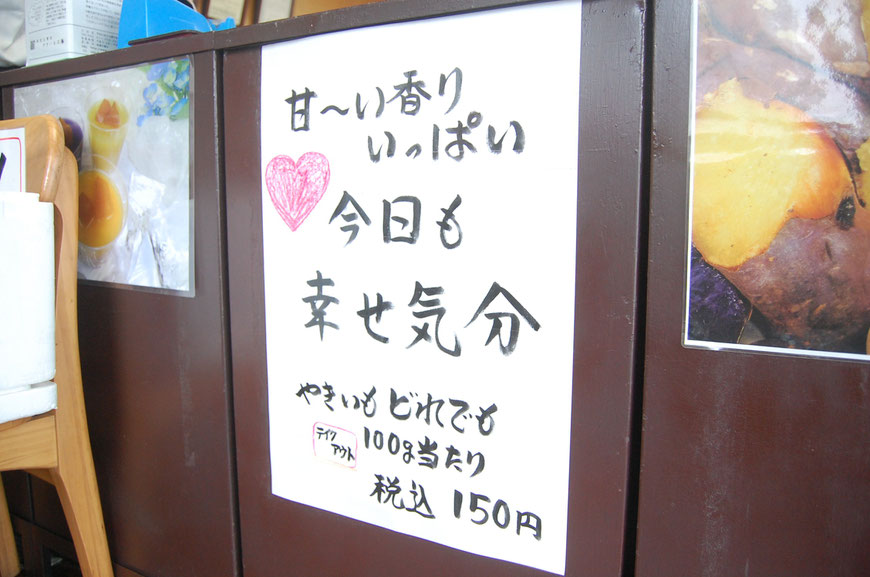 甘～い香り
いっぱい
今日も
幸せ気分
やきいも どれでも
テイク
アウト
100g当たり
税込 150円